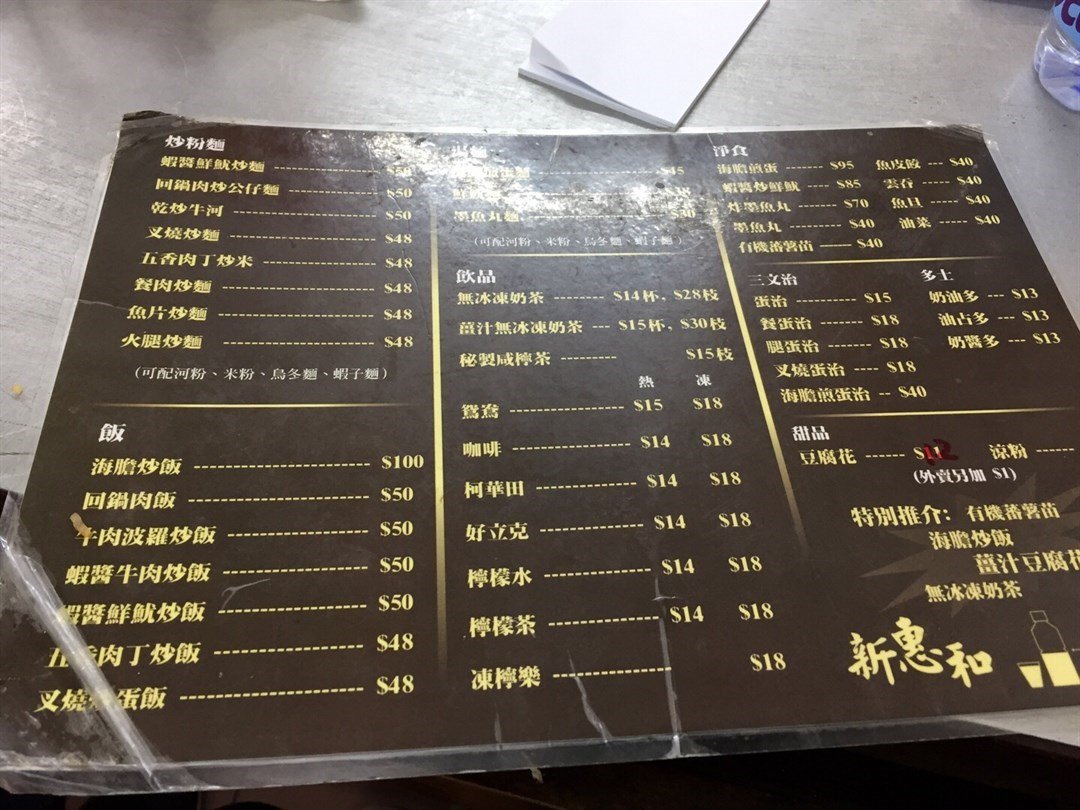 炒粉麵
蝦醬鮮魷炒麵 $50
回鍋肉炒公仔麵 $50
乾炒牛河 $50
叉燒炒麵 $48
五香肉丁炒米 $48
餐肉炒麵 $48
魚片炒麵 $48
火腿炒麵 $48
(可配河粉、米粉、烏冬麵、蝦子麵)
飯
海膽炒飯 $100
回鍋肉飯 $50
牛肉波羅炒飯 $50
蝦醬牛肉炒飯 $50
蝦醬鮮魷炒飯 $50
五香肉丁炒飯 $48
叉燒 蛋飯 $48
$45
墨魚丸麵 $30
(可配河粉、米粉、烏冬麵、蝦子麵)
飲品
無冰凍奶茶 $14杯, $28枝
薑汁無冰凍奶茶 $15杯, $30枝
秘製咸檸茶 $15枝
熱 凍
鴛鴦 $15 $18
咖啡 $14 $18
柯華田 $14 $18
好立克 $14 $18
檸檬水 $14 $18
檸檬茶 $14 $18
凍檸樂 $18
淨食
海膽煎蛋 $95 魚皮餃 $40
蝦醬炒鮮魷 $85 雲吞 $40
炸墨魚丸 $70 魚旦 $40
墨魚丸 $40 油菜 $40
有機蕃薯苗 $40
三文治 多士
蛋治 $15 奶油多 $13
餐蛋治 $18 油占多 $13
腿蛋治 $18 奶醬多 $13
叉燒蛋治 $18
海膽煎蛋治 $40
甜品
豆腐花 $12 涼粉
(外賣另加 $1)
特別推介: 有機蕃薯苗
海膽炒飯
薑汁豆腐花
無冰凍奶茶
新惠和